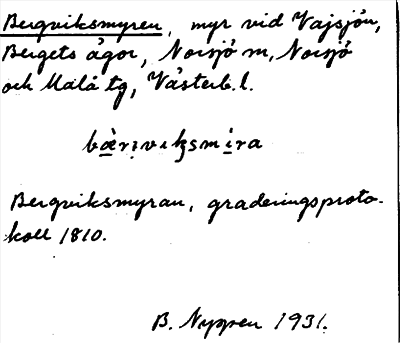 Bergviksmyren, myr vid Vajsjön,
Bergets ägor, Norsjö sn, Norsjö
och Malå tg, Västerb. l.
Bergviksmyran, graderingsproto-
koll 1810.
B. Nyppen 1931.